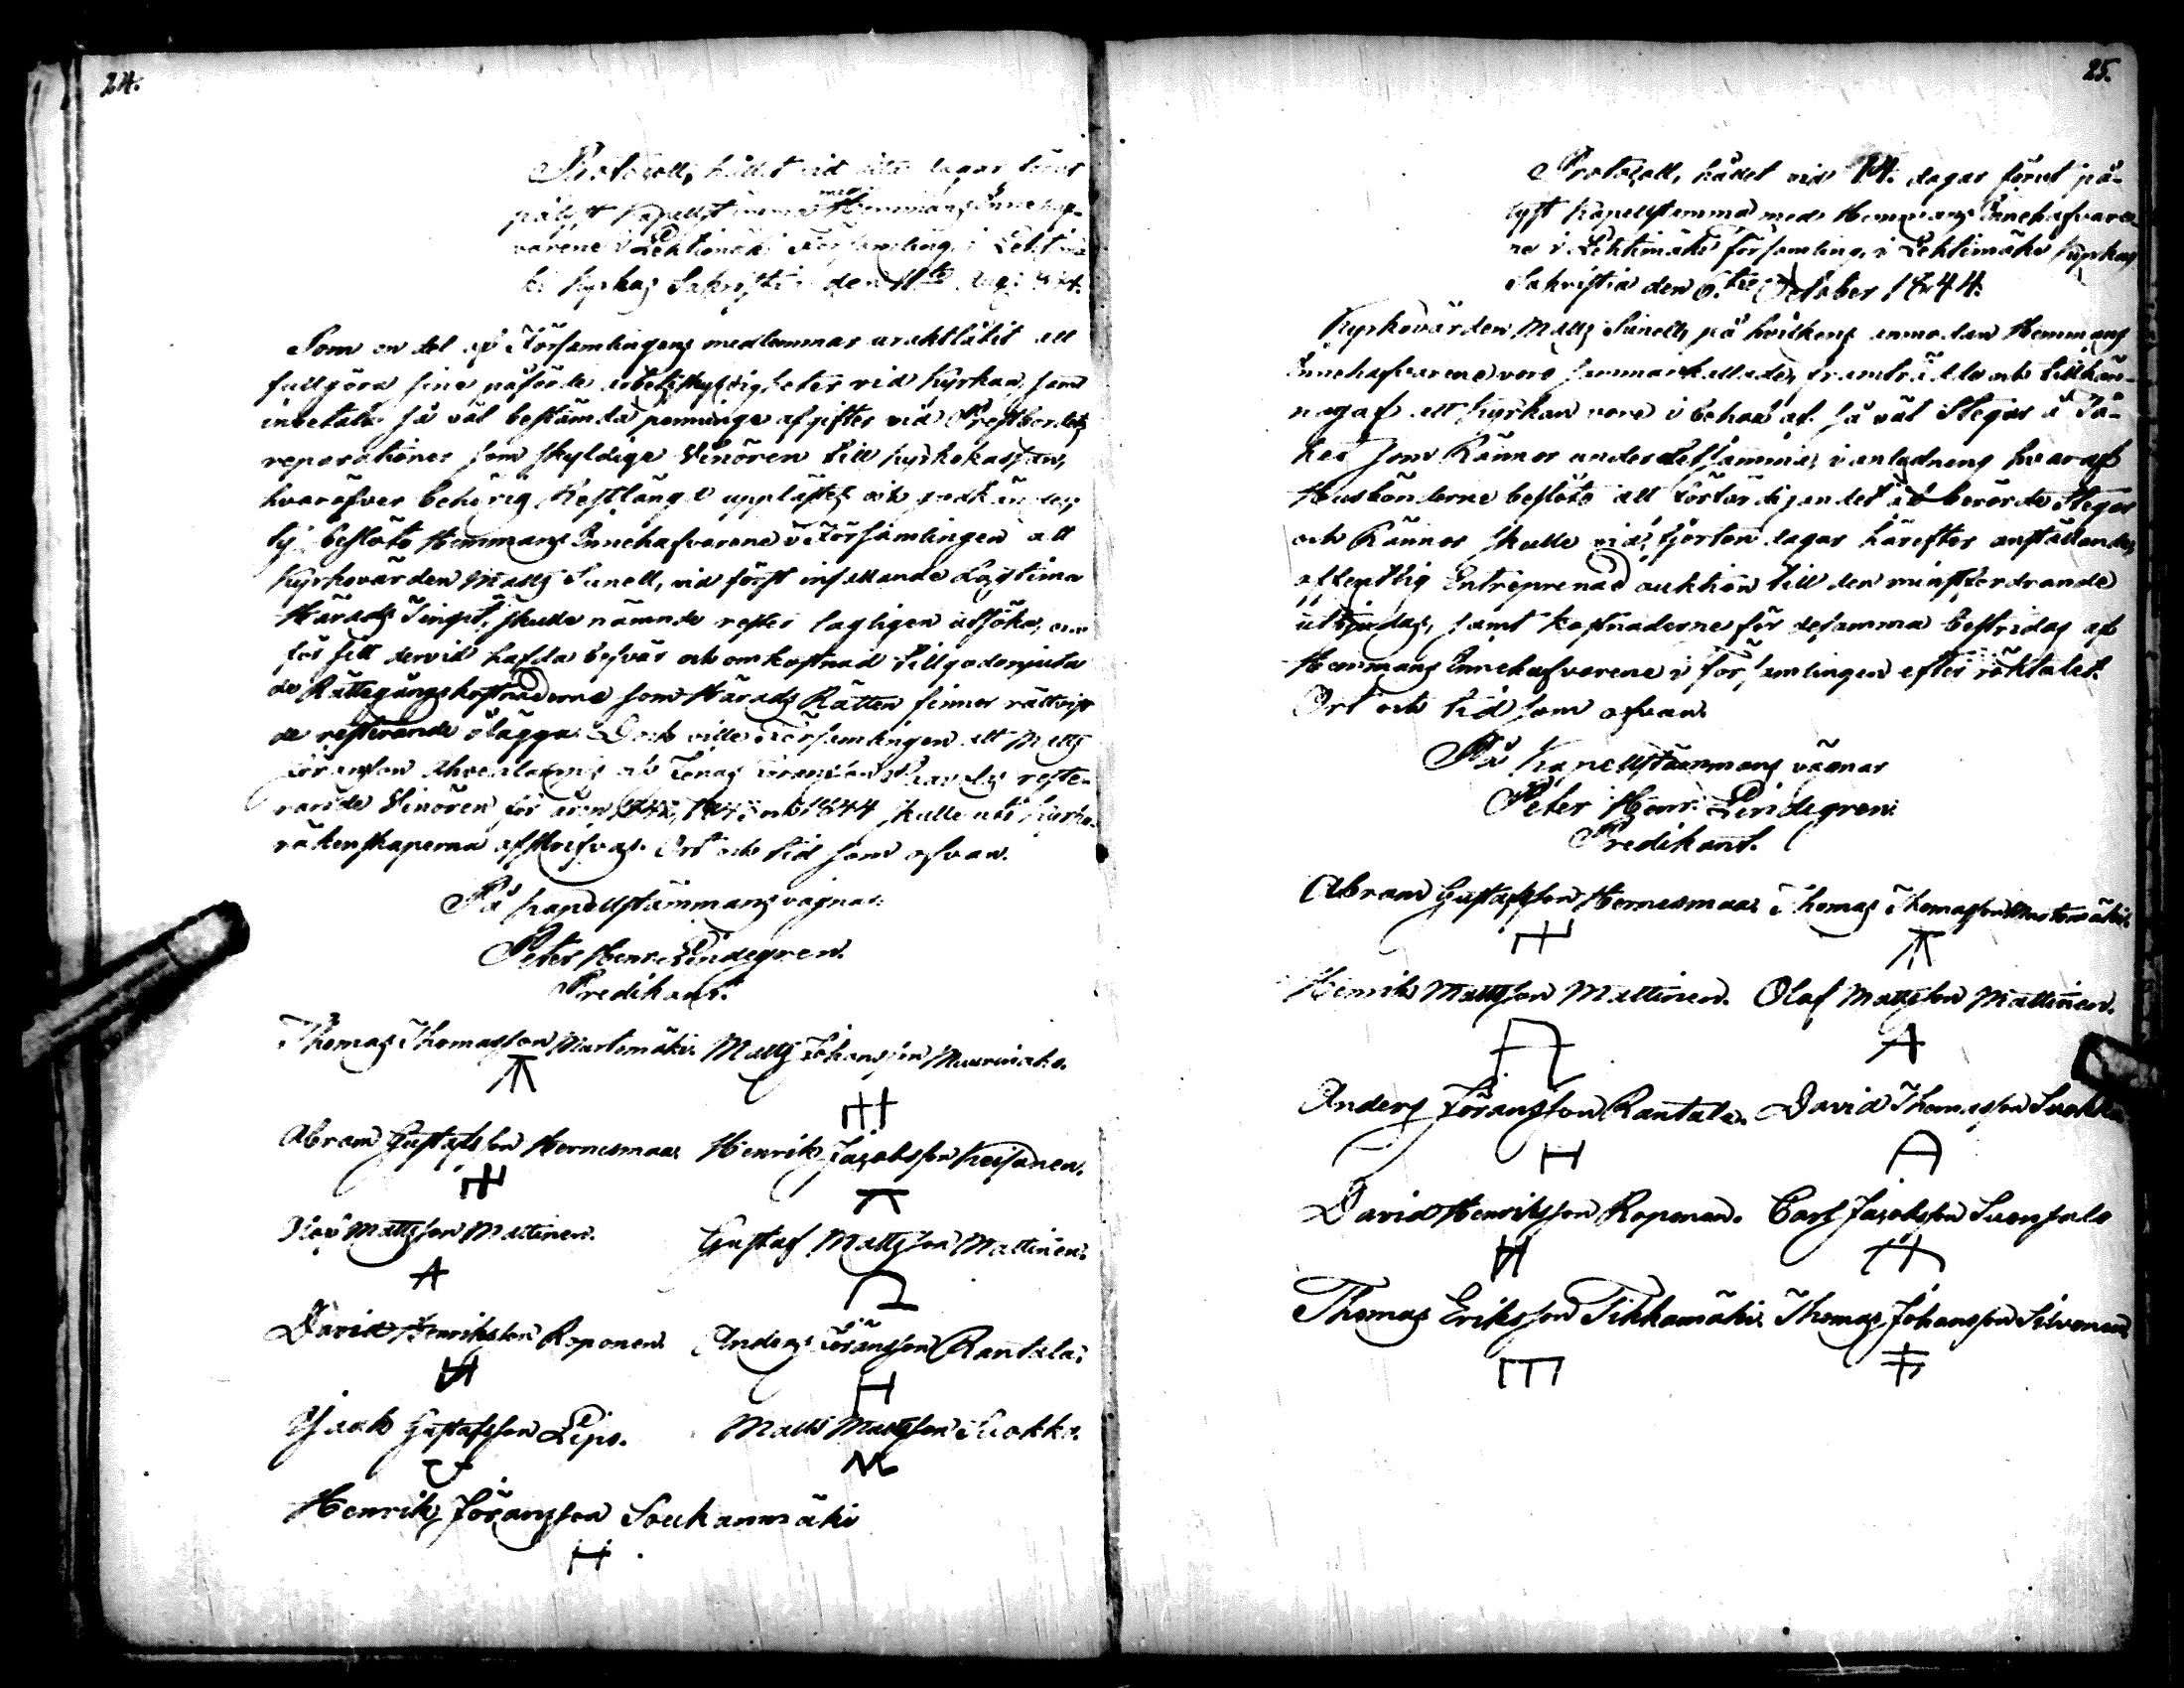 24.
Protocoll, hållit vid åtta dagar förut
pålyst Kapellstämma med Hemmans Innehaf-
varene i Lehtimäki Församling, i Lehtimä-
ki Kyrkas Sakristia den 11te Aug. 1844.
Som en del af Församlingens medlemmar uraktlåtit att
fullgöra sine påförde arbetsskyldigheter vid Kyrkan, samt
inbetala så väl bestämda penninge afgifter vid Prestbordets
reparationer som skyldige Vinören till Kyrkokassan,
hvaröfver behörig Restlängd upplästes och godkändes,
ty beslöto Hemmans Innehafvarene i Församlingen att
Kyrkovärden Matts Sunell, vid först infallande Lagtima
Härads Tinget, skulle nämnde rester lagligen utsöka, och
för sitt dervid hafda besvär och omkostnad tillgodonjuta
de Rättegångskostnaderne som Härads Rätten finner rättvist
de resterande ålägga. Dock ville Församlingen att Matts
Jöransson Ahvenlampi och Jonas Göransson resте-
rande Vinören för åren 1842, 1843 och 1844 skulle uti Kyrko-
räkenskaperna afskrifvas. Ort och tid som ofvan.
På Kapellstämmans vägnar:
Peter Henr. Lindegren.
Predikant.
Thomas Thomasson Martemäki. Matts Johansson
Abram Gustafsson Hernesmaa. Henrik Jacobsson Keisanen.
Olof Mattsson Mattinen. Gustaf Mattsson Mattinen.
David Henriksson Roponen. Anders Jöransson Rantala.
Isaak Gustafsson Lipo. Matts Mattsson Suokko.
Henrik Jöransson Soukanmäki
25.
Protocoll, hållet vid 14. dagar förut på-
lyst Kapellstämma med Hemmans Innehafvare-
ne i Lehtimäki församling, i Lehtimäki Kyrkas
Sakristia den 6.te October 1844.
Kyrkovärden Matts Sunell, på hvilkens anmodan Hemmans
Innehafvarene voro sammankallade, framträdde och tillkän-
nagaf att Kyrkan vore i behof af så väl Stegar å Ta-
ket som Rännor under detsamma, i anledning hvaraf
Husbönderne beslöto att förfärdigandet af berörde Stegar
och Rännor skulle vid, fjorton dagar härefter anställande,
offentlig Entreprenad auktion till den minstfordrande
utbjudas, samt kostnaderne för desamma bestridas af
Hemmans Innehafvarene i församlingen efter röktalet.
Ort och tid som ofvan.
På Kapellstämmans vägnar
Peter Henr. Lindegren.
Predikant.
Abram Gustafsson Hernesmaa. Thomas Thomasson Martemäki.
Henrik Mattsson Mattinen. Olof Mattsson Mattinen.
Anders Jöransson Rantala. David Thomasson Suokko
David Henriksson Roponen. Carl Jacobsson Suensalo
Thomas Eriksson Tikkamäki. Thomas Johansson Silvonen